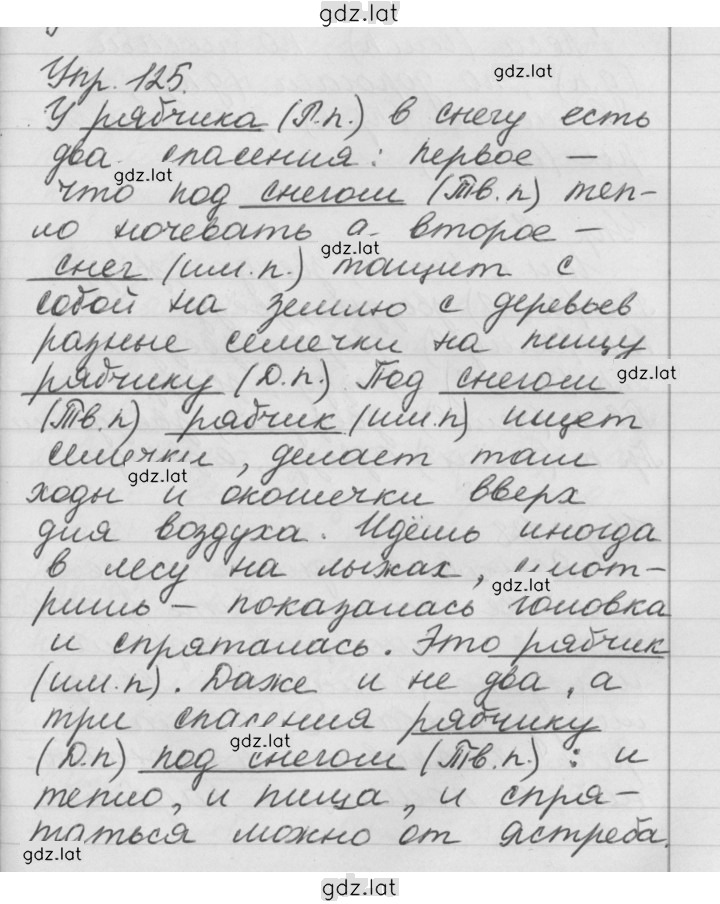 gdz.lat
Упр. 125.
gdz.lat
У рябчика (Р.п.) в снегу есть
два спасения: первое —
gdz.lat
что под снегом (Тв.п) теп-
ло ночевать а второе —
gdz.lat
снег (им.п.) тащит с
собой на землю с деревьев
разные семечки на пищу
gdz.lat
рябчику (Д.п.) Под снегом
(Тв.п) рябчик (им.п) ищет
семечки, делает там
gdz.lat
ходы и окошечки вверх
для воздуха. Идёшь иногда
в лесу на лыжах, смот-
gdz.lat
ришь — показалась головка
и спряталась. Это рябчик
(им.п). Даже и не два, а
три спасения рябчику
gdz.lat
(Д.п) под снегом (Тв.п.): и
тепло, и пища, и спря-
таться можно от ястреба.
gdz.lat
gdz.lat